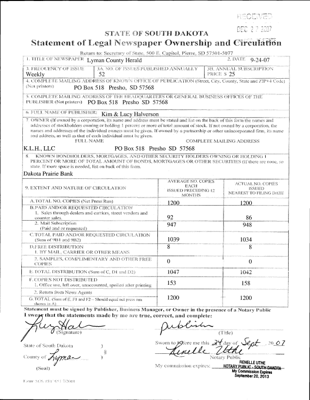 RECEIVED
DEC 27 2007
STATE OF SOUTH DAKOTA
Statement of Legal Newspaper Ownership and Circulation
Return to: Secretary of State, 500 E. Capitol, Pierre, SD 57501-5077
1. TITLE OF NEWSPAPER Lyman County Herald 2. DATE 9-24-07
3. FREQUENCY OF ISSUE Weekly
3A. NO. OF ISSUES PUBLISHED ANNUALLY 52
3B. ANNUAL SUBSCRIPTION PRICE $ 25
4. COMPLETE MAILING ADDRESS OF KNOWN OFFICE OF PUBLICATION (Street, City, County, State and ZIP+4 Code)
(Not printers) PO Box 518 Presho, SD 57568
5. COMPLETE MAILING ADDRESS OF THE HEADQUARTERS OR GENERAL BUSINESS OFFICES OF THE
PUBLISHER (Not printers) PO Box 518 Presho, SD 57568
6. FULL NAME OF PUBLISHER: Kim & Lucy Halverson
7. OWNER (If owned by a corporation, its name and address must be stated and
FULL NAME COMPLETE MAILING ADDRESS
K.L.H., LLC PO Box 518 Presho, SD 57568
8. KNOWN BONDHOLDERS, MORTGAGES, AND OTHER SECURITY HOLDERS OWNING OR HOLDING 1
PERCENT OR MORE OF TOTAL AMOUNT OF BONDS, MORTGAGES OR OTHER SECURITIES
Dakota Prairie Bank
9. EXTENT AND NATURE OF CIRCULATION
AVERAGE NO. COPIES EACH ISSUED PRECEDING 12 MONTHS
ACTUAL NO. COPIES ISSUED NEAREST TO FILING DATE
A. TOTAL NO. COPIES (Net Press Run) 1200 1200
B. PAID AND/OR REQUESTED CIRCULATION
1. Sales through dealers and carriers, street vendors and
counter sales. 92 86
2. Mail Subscription 947 948
(Paid and or requested)
C. TOTAL PAID AND/OR REQUESTED CIRCULATION
(Sum of 9B1 and 9B2) 1039 1034
D. FREE DISTRIBUTION 8 8
1. BY MAIL, CARRIER OR OTHER MEANS
2. SAMPLES, COMPLIMENTARY AND OTHER FREE
COPIES 0 0
E. TOTAL DISTRIBUTION (Sum of C, D1 and D2) 1047 1042
F. COPIES NOT DISTRIBUTED
1. Office use, left over, unaccounted, spoiled after printing 153 158
2. Return from News Agents
G. TOTAL (Sum of E, F1 and F2 - Should equal net press run
shown in A) 1200 1200
Statement must be signed by Publisher, Business Manager, or Owner in the presence of a Notary Public
I swear that the statements made by me are true, correct, and complete:
Publisher
(Signature) (Title)
State of South Dakota )
County of Lyman )
Sworn to before me this 24 day of Sept 2007
Renelle Uthe
Notary Public
(Seal)
My commission expires:
RENELLE UTHE
NOTARY PUBLIC - SOUTH DAKOTA
My Commission Expires
September 20, 2013